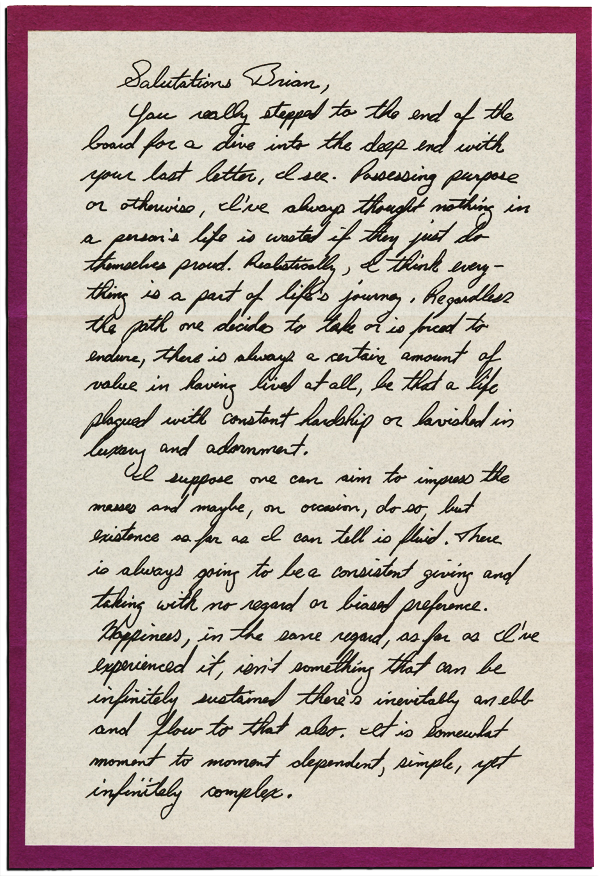 Salutations Brian,
You really stepped to the end of the
board for a dive into the deep end with
your last letter, I see. Possessing purpose
or otherwise, I've always thought nothing in
a person's life is wasted if they just do
themselves proud. Realistically, I think every-
thing is a part of life's journey. Regardless
the path one decides to take or is forced to
endure, there is always a certain amount of
value in having lived at all, be that a life
plagued with constant hardship or lavished in
luxury and adornment.
I suppose one can aim to impress the
masses and maybe, on occasion, do so, but
existence so far as I can tell is fluid. There
is always going to be a consistent giving and
taking with no regard or biased preference.
Happiness, in the same regard, as far as I've
experienced it, isn't something that can be
infinitely sustained there's inevitably an ebb
and flow to that also. It is somewhat
moment to moment dependent, simple, yet
infinitely complex.